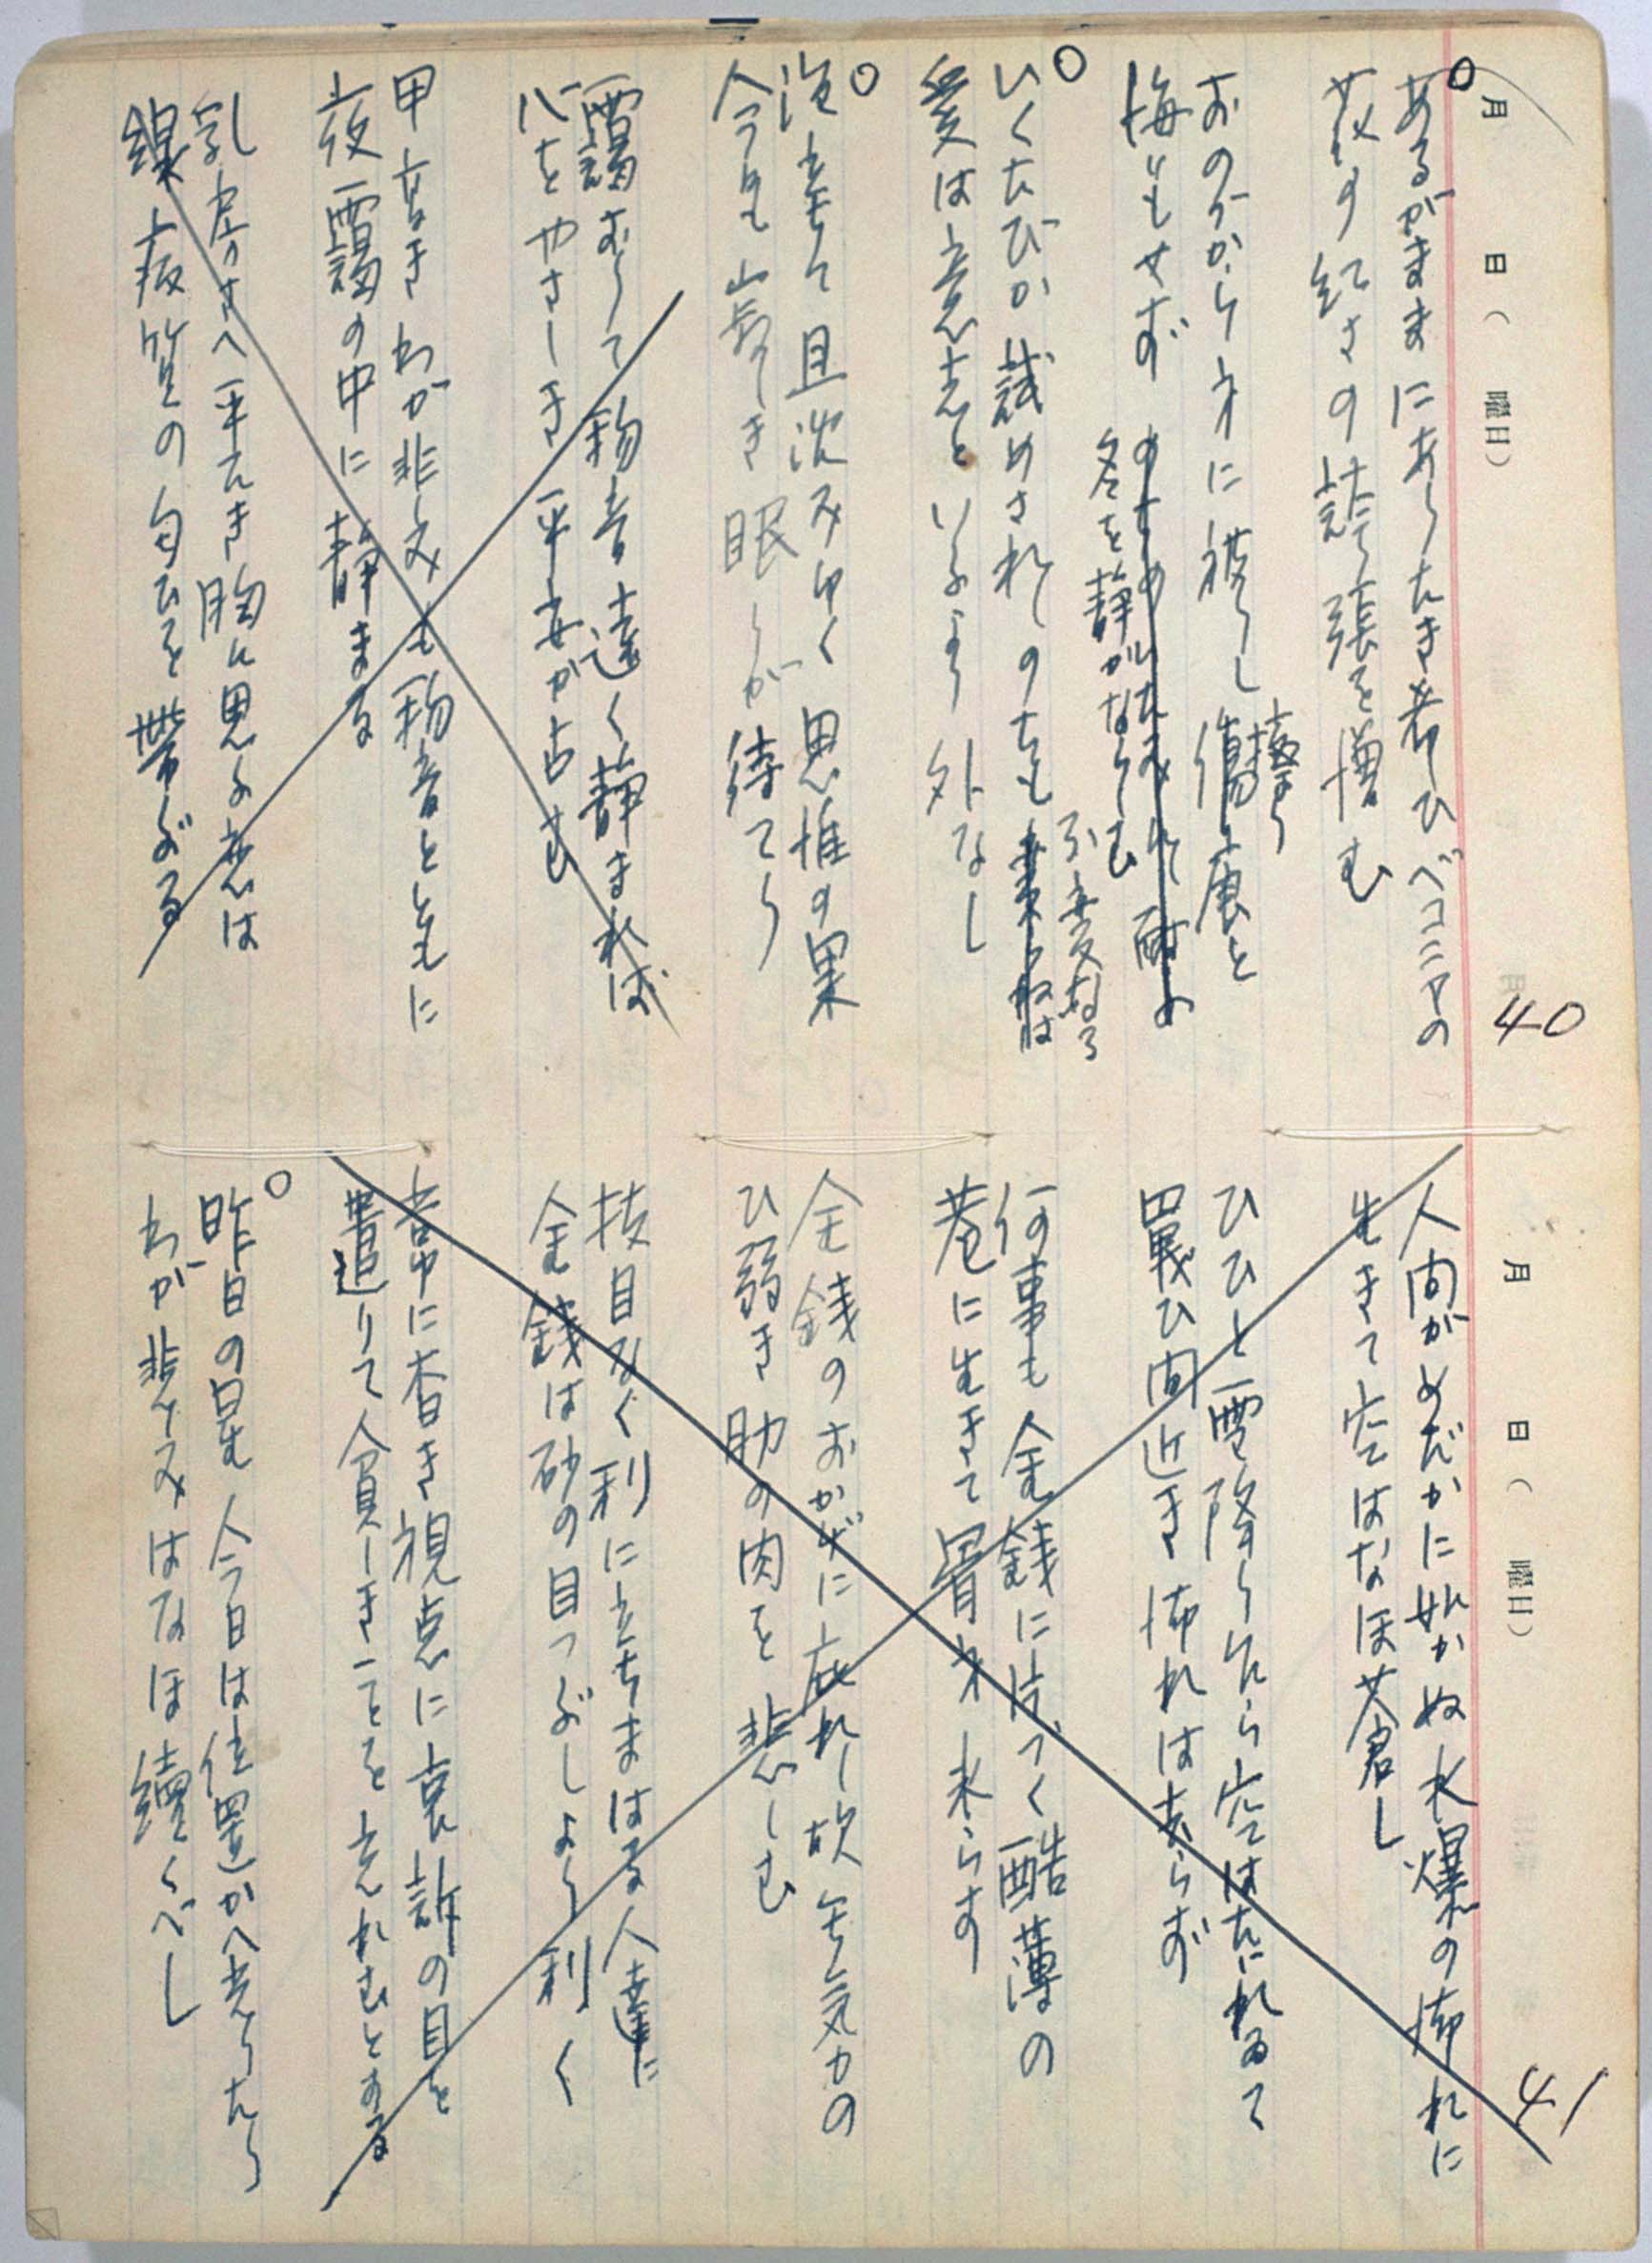 月 日( 曜日)
40
あるがままにありたき希ひベコニヤの
紅さの誇張を増む
おのづから身に被りし傷痕と
悔いもせず
冬を静かならしむ
いくたびか試めされしのちも
不変なる
愛は意志といふより外なし
泡立ちて且沈みゆく思惟の果
今も崇き眼しが待てり
靄おりて物音遠く静まれば
心をやさしき平安が占む
甲高きわが悲しみも物音とともに
夜靄の中に静まる
乳房さへ平たき胸に思ふ恋は
線病質の匂ひを帯ぶる
月 日( 曜日)
41
人間がめだかに如かぬ水爆の怖れに
生きて空はなほ蒼し
ひひと雪降りゐら空はたれゐて
罠ひ間近き怖れは去らず
何事も金銭に片づく酷薄の
巷に生きて
金銭のおかげに庇れし故無気力の
ひ弱き肋の肉を悲しむ
抜目なく利に立ちまはる人達に
金銭は砂の目つぶしより利く
常に杳き視点に哀訴の目を
遣りて貧しきことを忘れむとする
昨日の星今日は位置かへ光りたり
わが悲しみはなほ續くべし